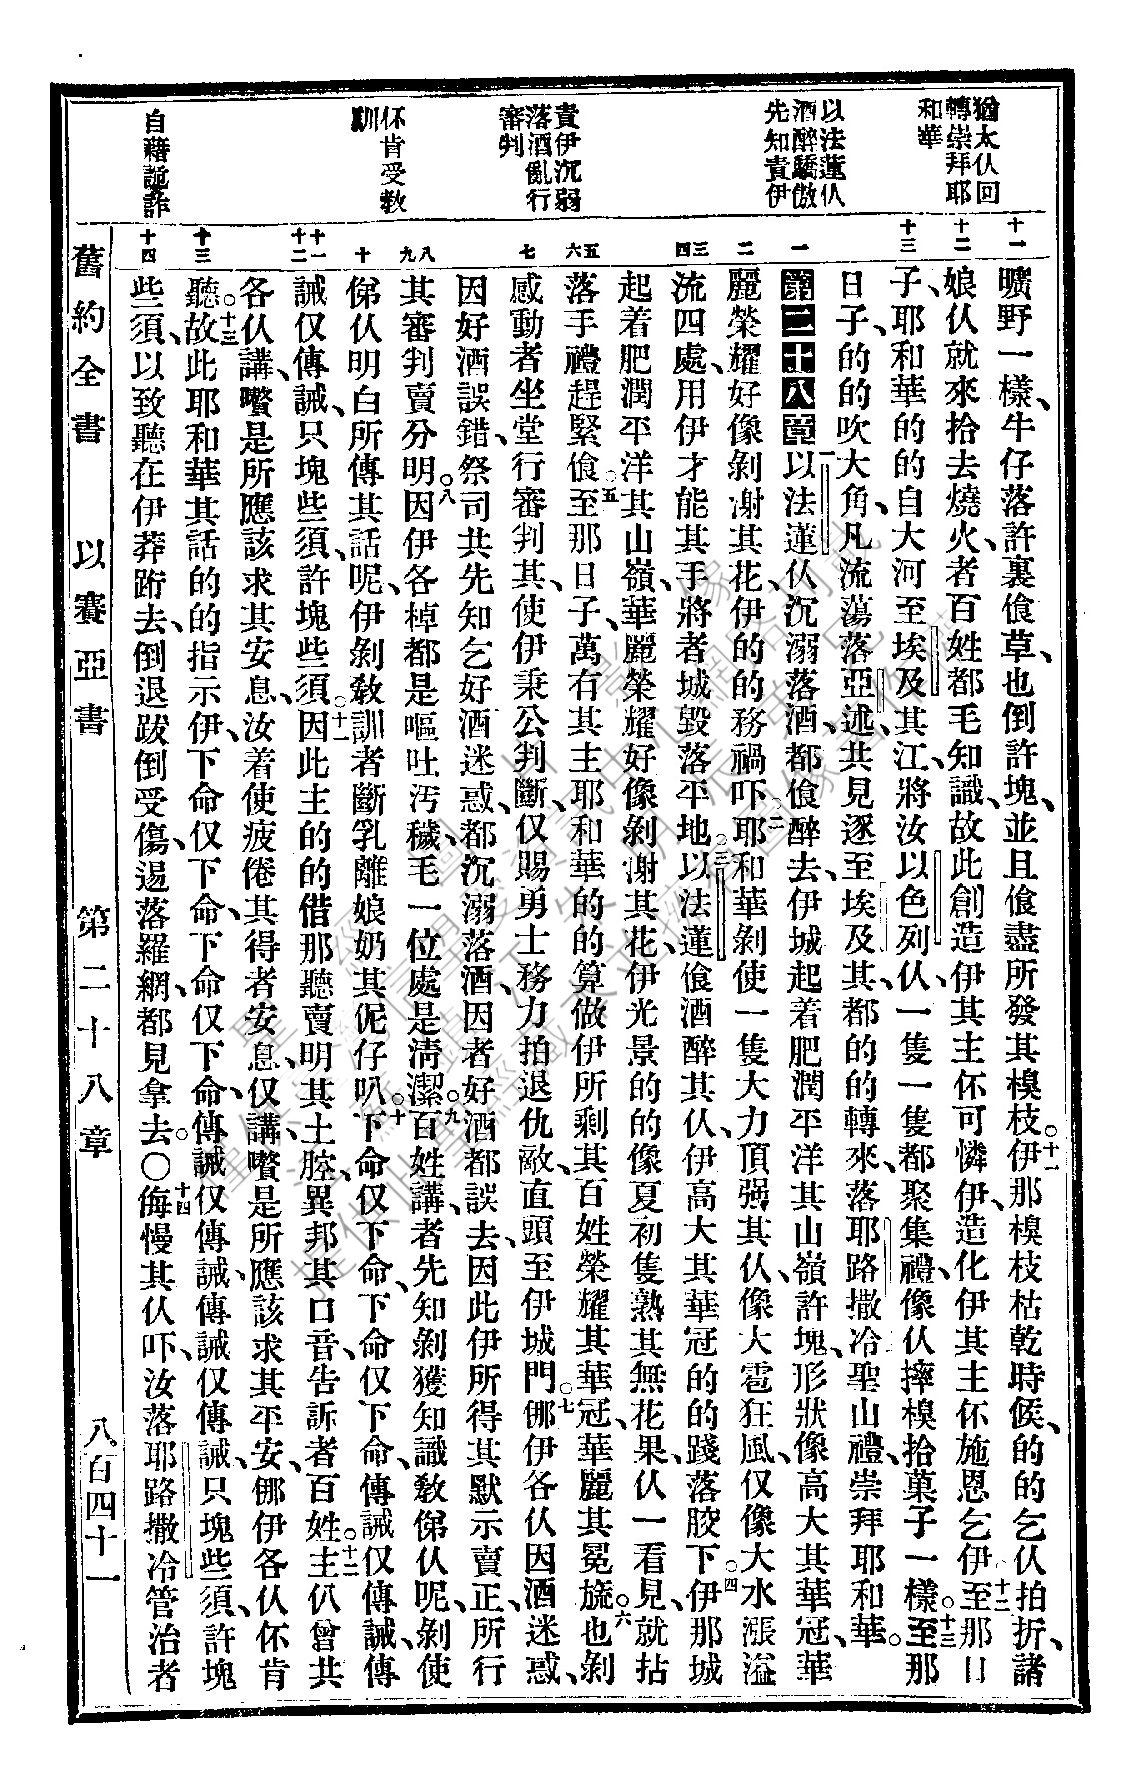 猶太仈回
轉崇拜耶
和華
以法蓮仈
酒醉驕傲
先知責伊
責伊沉弱
落酒亂行
審判
伓肯受教
訓
自藉詭詐
十一
十二
十三
一
二
三四
五六
七
八九
十
十一十二
十三
十四
曠野一樣、牛仔落許裏飡草、也倒許塊、並且飡盡所發其模枝。十一伊那模枝枯乾時候、的的乞仈拍折、諸
娘仈就來拾去燒火、者百姓都毛知識、故此創造伊其主伓可憐伊、造化伊其主伓施恩乞伊。十二至那日
子、耶和華的的自大河至埃及其江、將汝以色列仈、一隻一隻都聚集禮、像仈摔模拾菓子一樣。十三至那
日子、的的吹大角、凡流蕩落亞述、共見逐至埃及其、都的的轉來、落耶路撒冷聖山禮、崇拜耶和華。
第二十八章 一以法蓮仈沉溺落酒、都飡醉去、伊城起着肥潤平洋其山嶺、許塊形狀、像高大其華冠、華
麗榮耀、好像剝謝其花、伊的的務禍吓。二耶和華剝使一隻大力頂强其仈、像大雹狂風、仅像大水漲溢
流四處、用伊才能其手、將者城毀落平地。三以法蓮飡酒醉其仈、伊高大其華冠的的踐落腔下。四伊那城
起着肥潤平洋其山嶺、華麗榮耀、好像剝謝其花、伊光景的的像夏初隻熟其無花果、仈一看見、就拈
落手禮趕緊飡。五至那日子、萬有其主耶和華的的算做伊所剩其百姓榮耀其華冠、華麗其冕旒。六也剝
感動者坐堂行審判其、使伊秉公判斷、仅賜勇士務力拍退仇敵、直頭至伊城門。七㑚伊各仈因酒迷惑、
因好酒誤錯、祭司共先知乞好酒迷惑、都沉溺落酒、因者好酒都誤去、因此伊所得其默示賣正、所行
其審判賣分明。八因伊各棹都是嘔吐汚穢、毛一位處是淸潔。九百姓講、者先知剝獲知識教俤仈呢、剝使
俤仈明白所傳其話呢、伊剝敎訓者斷乳離娘奶其伲仔叭。十下命仅下命、下命仅下命、傳誡仅傳誡、傳
誡仅傳誡、只塊些須、許塊些須。十一因此主的的借那聽賣明其土腔、異邦其口音、告訴者百姓。十二主仍曾共
各仈講、嚽是所應該求其安息、汝着使疲倦其得者安息、仅講、嚽是所應該求其平安、㑚伊各仈伓肯
聽。十三故此耶和華其話的的指示伊、下命仅下命、下命仅下命、傳誡仅傳誡、傳誡仅傳誡、只塊些須、許塊
些須、以致聽在伊莽跡去、倒退跋倒受傷、逷落羅網、都見拿去。○十四侮慢其仈吓、汝落耶路撒冷管治者
舊約全書 以賽亞書 第二十八章 八百四十一